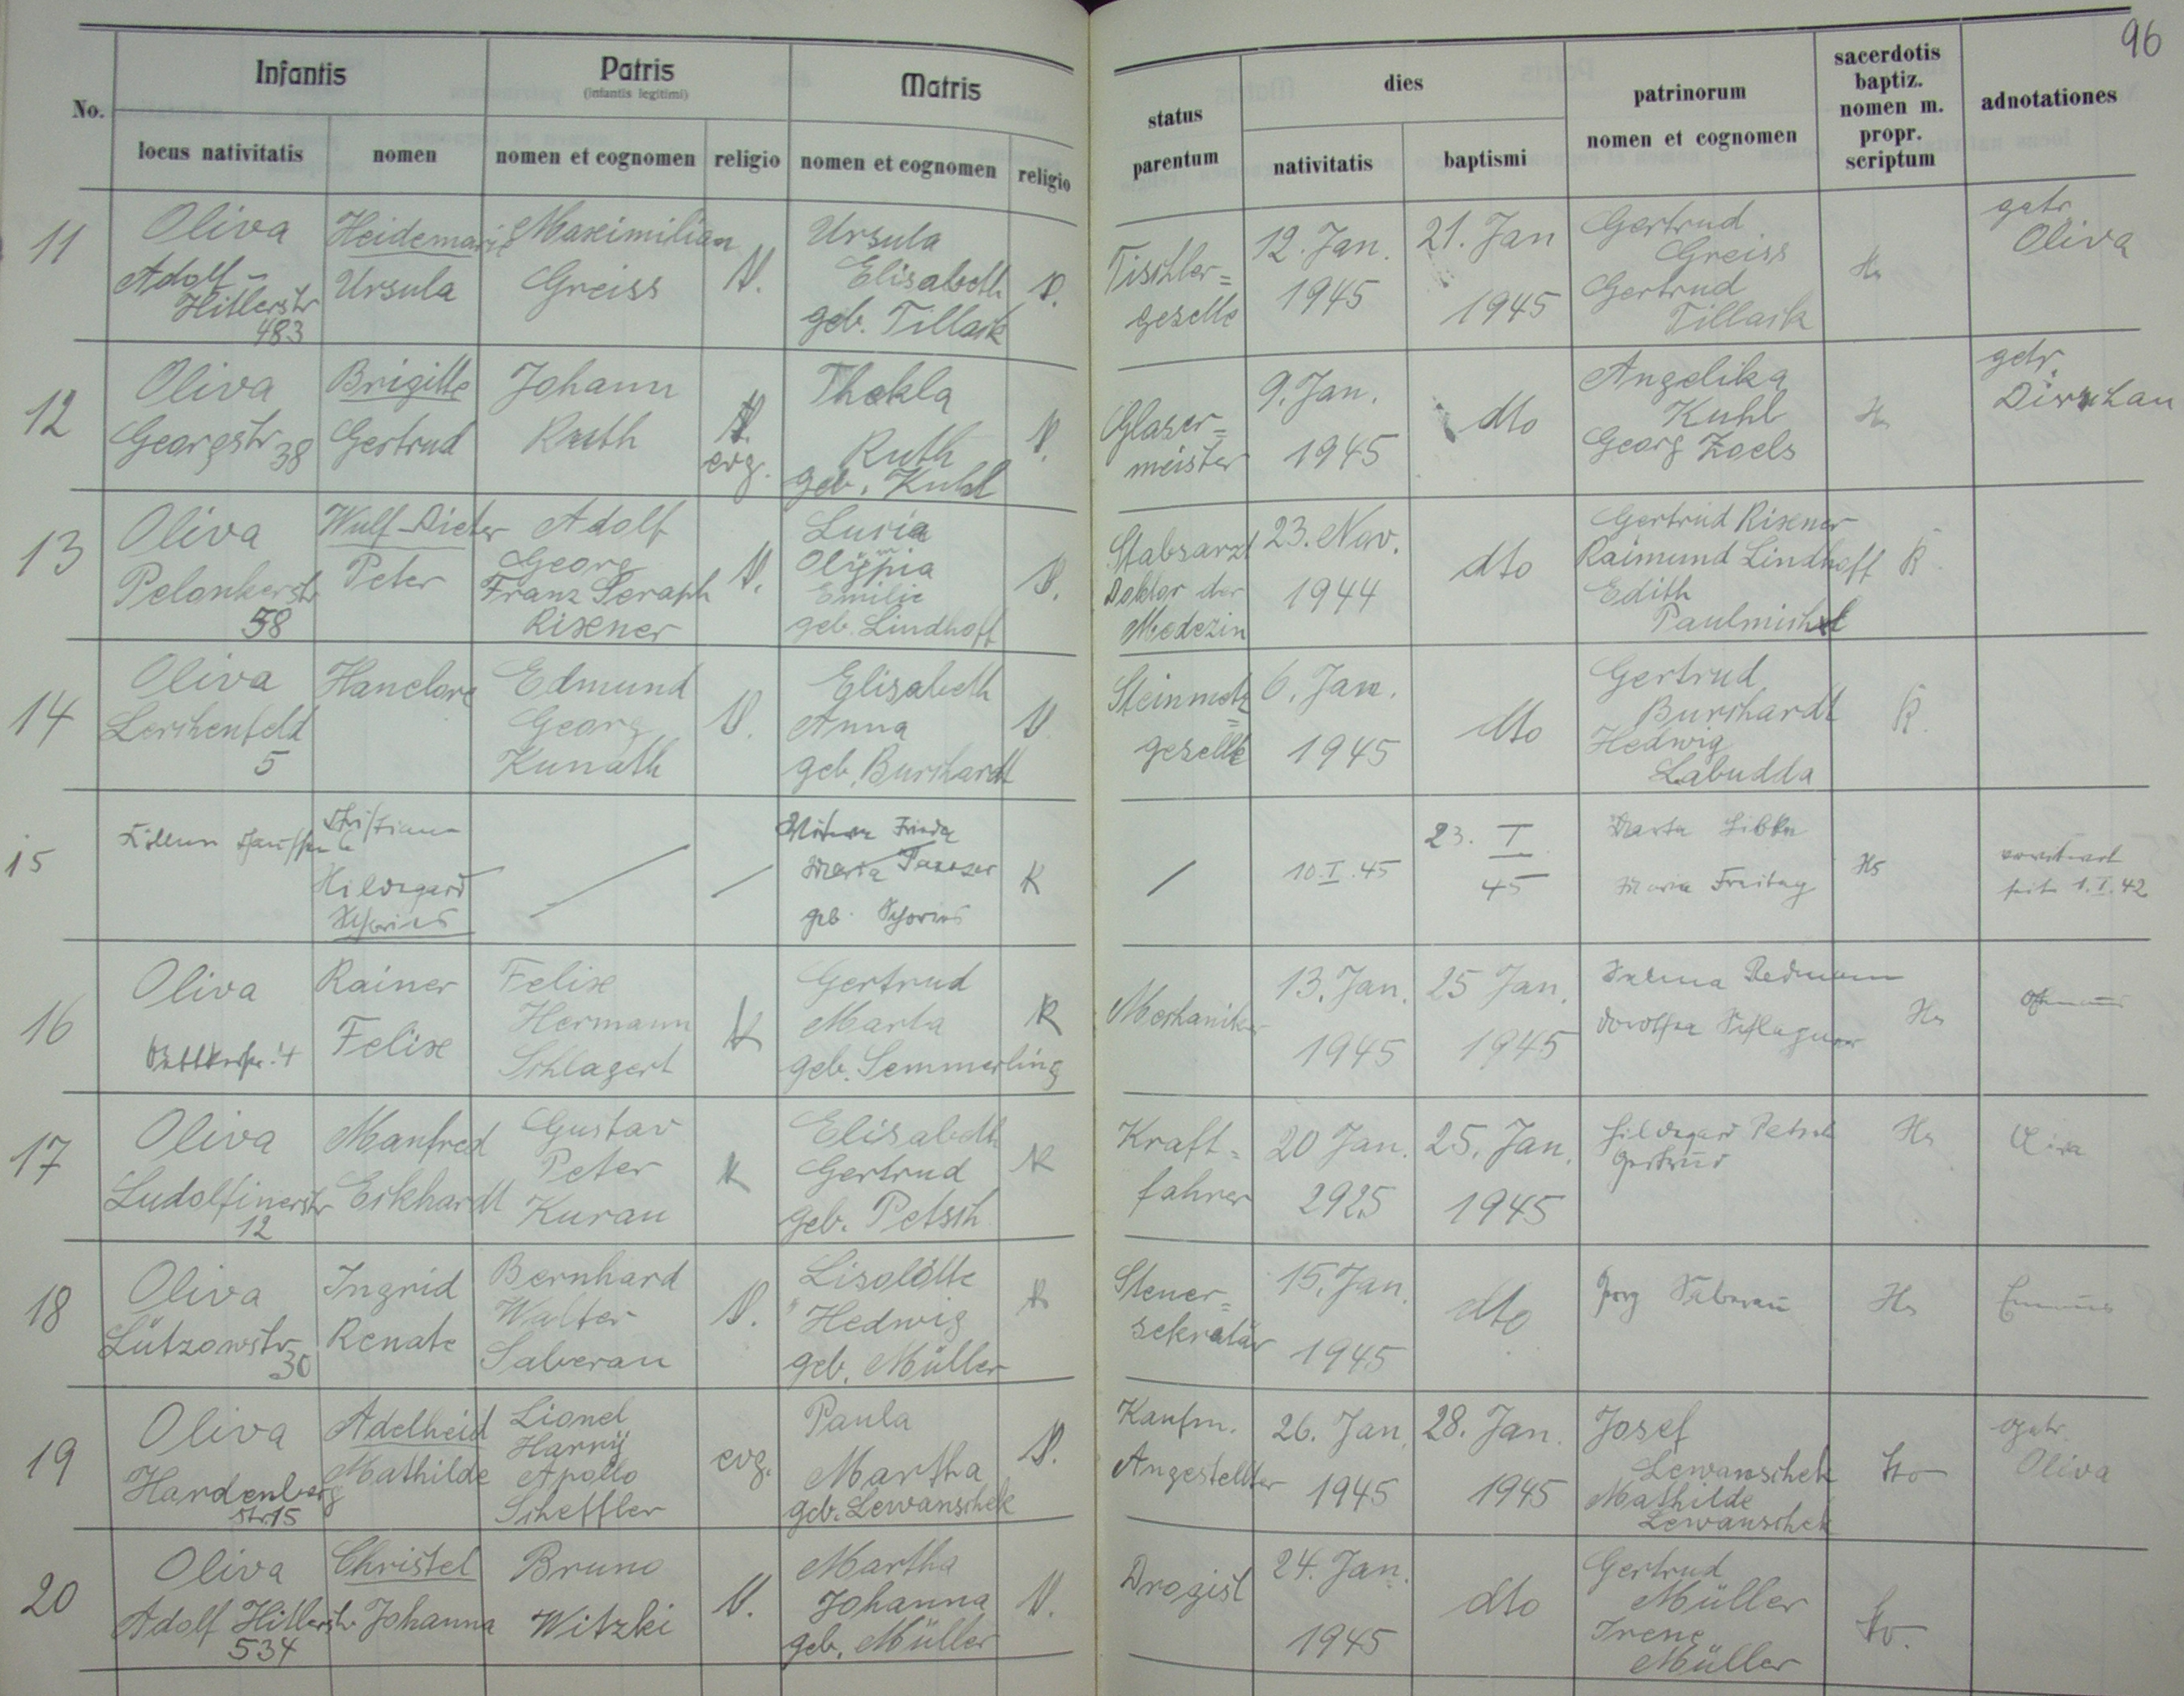 96
Infantis
Patris
(infantis legitimi)
Matris
status
parentum
dies
patrinorum
nomen et cognomen
sacerdotis
baptiz.
nomen m.
propr.
scriptum
adnotationes
No.
locus nativitatis
nomen
nomen et cognomen
religio
nomen et cognomen
religio
nativitatis
baptismi
11
Oliva
Adolf-
Hitlerstr
483
Heidemarie
Ursula
Maximilian
Greiss
Ursula
Elisabeth
geb. Tillack
Tischler=
geselle
12. Jan.
1945
21. Jan
1945
Gertrud
Greiss
Gertrud
Tillack
Hs
getr
Oliva
12
Oliva
Georgstr 38
Brigitte
Gertrud
Johann
Ruth
evg.
Thekla
Ruth
geb. Kuhl
Glaser=
meister
9. Jan.
1945
dto
Angelika
Kuhl
Georg Zoels
Hs
getr.
Dirschau
13
Oliva
Pelonkerstr
58
Wulf-Dieter
Peter
Adolf
Georg
Franz Seraph
Rixener
Lucia
Olympia
Emilie
geb. Lindhoff
Stabsarzt
Doktor der
Medezin
23. Nov.
1944
dto
Gertrud Rixener
Raimund Lindhoff
Edith
Paulmichel
R
14
Oliva
Lerchenfeld
5
Hanelore
Edmund
Georg
Kunath
Elisabeth
Anna
geb. Burchardt
Steinmetz=
geselle
6. Jan.
1945
dto
Gertrud
Burchardt
Hedwig
Labudda
R.
15
Hildegard
Frieda
Maria
geb.
K
10.I.45
23. I
45
Marta Libka
Maria Freitag
Hs
seit 1.I.42
16
Oliva
Rainer
Felix
Felix
Hermann
Schlagert
K
Gertrud
Marta
geb. Semmerling
K
Mechaniker
13. Jan.
1945
25 Jan.
1945
Hs
17
Oliva
Ludolfinerstr
12
Manfred
Eckhardt
Gustav
Peter
Kurau
K
Elisabeth
Gertrud
geb. Petsch
K
Kraft=
fahrer
20 Jan.
2925
25. Jan.
1945
Hildegard Petsch
Gertrud
Hs
Oliva
18
Oliva
Lützowstr
30
Ingrid
Renate
Bernhard
Walter
Saberau
Liselotte
Hedwig
geb. Müller
Steuer=
sekretär
15. Jan.
1945
dto
Georg Saberau
Hs
Emaus
19
Oliva
Hardenberg
str 15
Adelheid
Mathilde
Lionel
Harry
Apollo
Scheffler
evg.
Paula
Martha
geb. Lewanschek
Kaufm.
Angestellter
26. Jan.
1945
28. Jan.
1945
Josef
Lewanschek
Mathilde
Lewanschek
getr.
Oliva
20
Oliva
Adolf Hitlerstr
534
Christel
Johanna
Bruno
Witzki
Martha
Johanna
geb. Müller
Drogist
24. Jan.
1945
dto
Gertrud
Müller
Irene
Müller